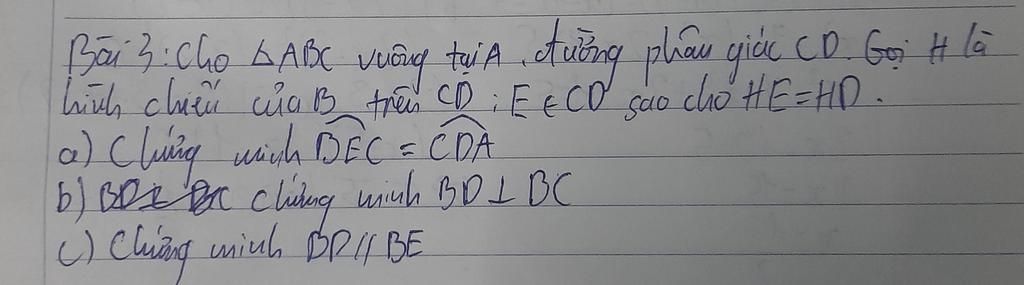 Bài 3: Cho ΔABC vuông tại A, đường phân giác CD. Gọi H là
hình chiếu của B trên CD; E ∈ CD sao cho HE = HD.
a) Chứng minh BEC = CDA
b) chứng minh BD ⊥ BC
c) Chứng minh BD // BE